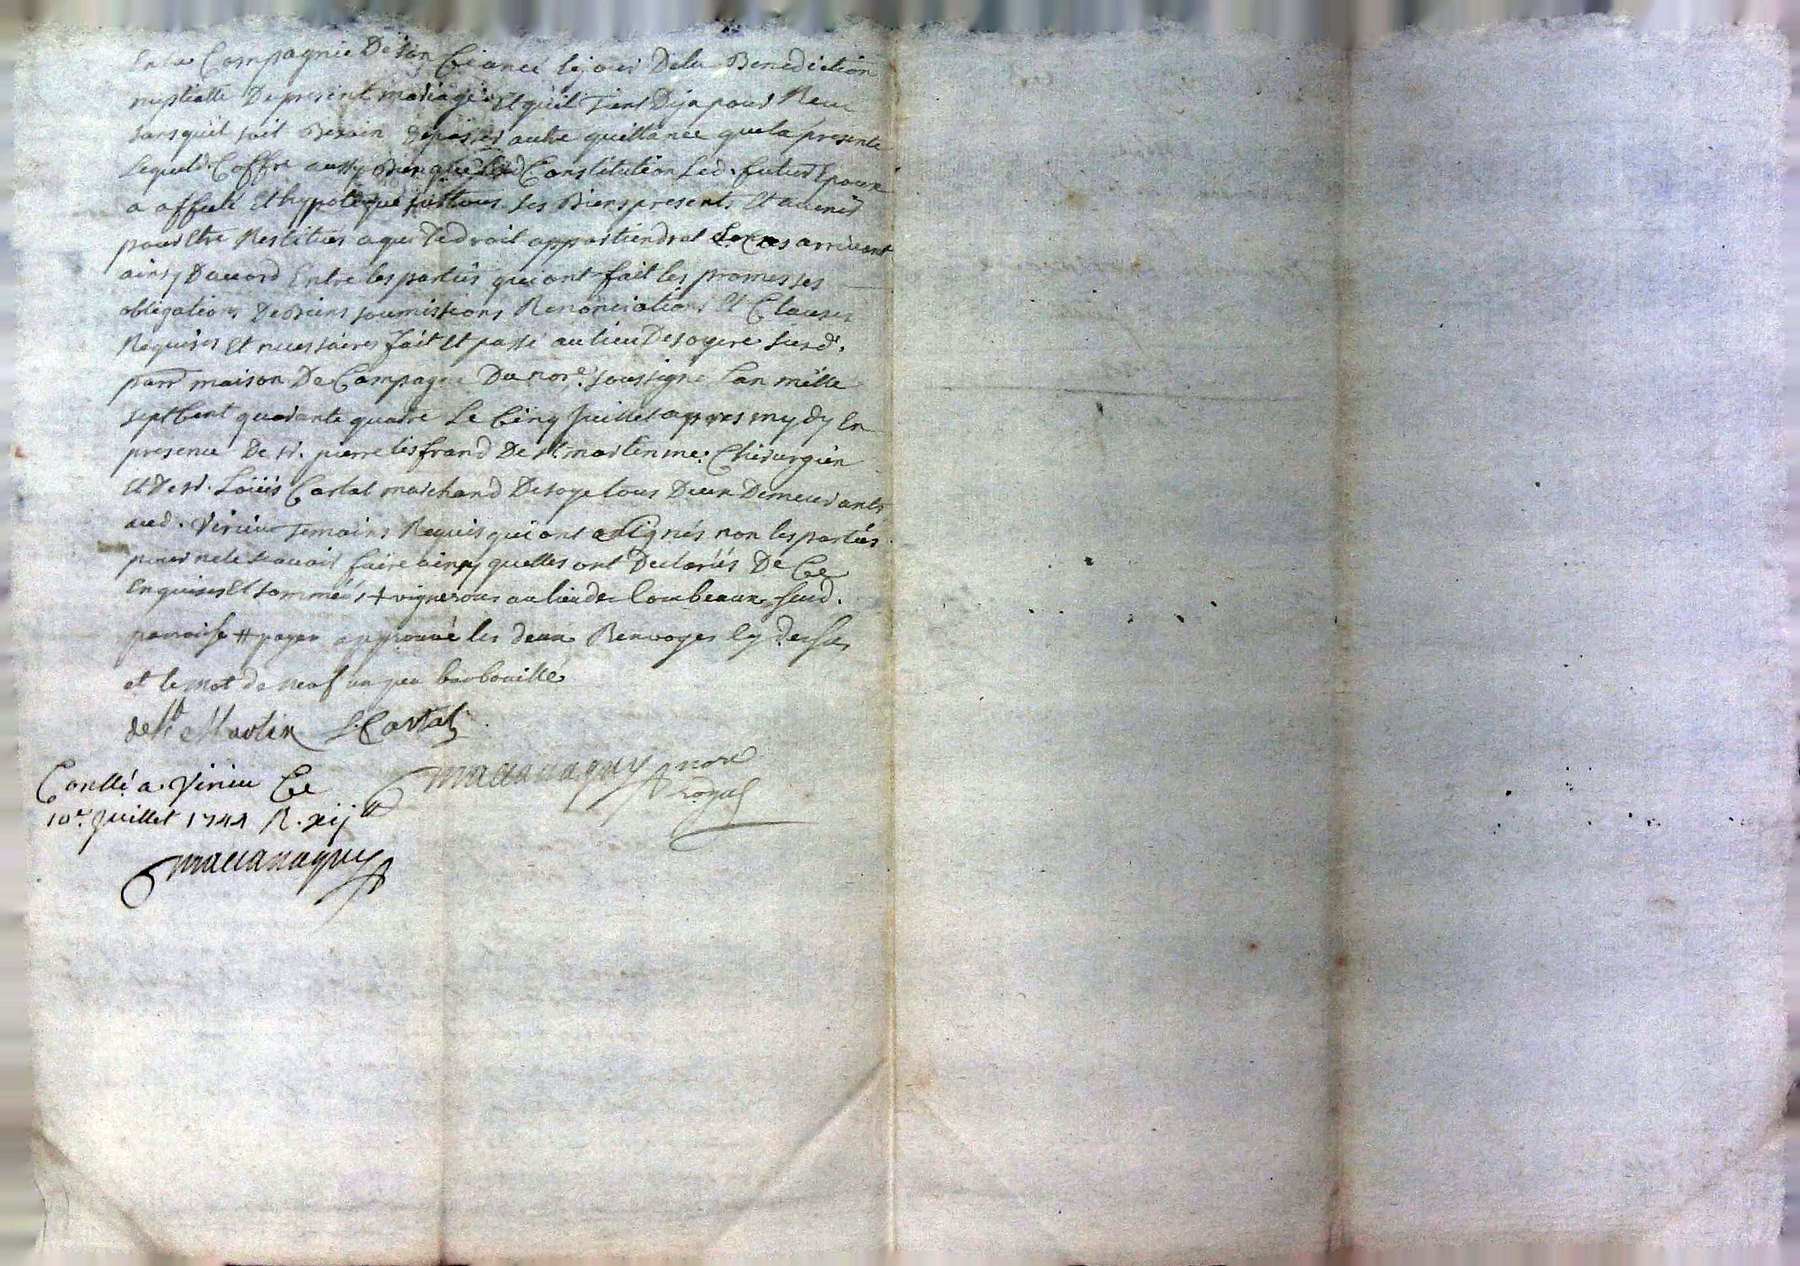 En la Compagnie De son fiancé le jour Dela Benediction
nuptialle De present mariage Et quil Tient Deja pour Reçu
sans quil soit Besoin autre quittance que la presente
Lequel Coffre aussy Bien que Lad Constitution Led. futur Epoux
a affecté Et hypotequé sur tous ses Biens presents Et avenir
pour Etre Restitués a qui de droit appartiendrat Le Cas arrivant
ainsy D'accord Entre les parties qui ont fait les promesses
obligations De Biens soumissions Renonciations Et Clauses
Requises Et necessaires fait Et passé au lieu De soyere susd.
parr maison De Campagne Du nore. soussigné Lan mille
sept Cent quarante quatre Le Cinq Juillet apres mydy En
presence De sr. pierre De st. martin me. Chirurgien
Et De sr. Loüis Cartal marchand De soye tous Deux Demeurants
aud. Virieu Temoins Requis qui ont signés non les parties
pour ne le scavoir faire ainsy quelles ont Declarés De Ce
Enquises Et sommées + vignerons au lieu de Combeaux susd.
parroisse # payer approuvé les deux Renvoyes Cy dessus
et le mot de neuf un peu barbouillé
de st Martin L. Cartal
nore
Royal
Conllé a Virieu Ce
10e. Juillet 1744 R. xij s